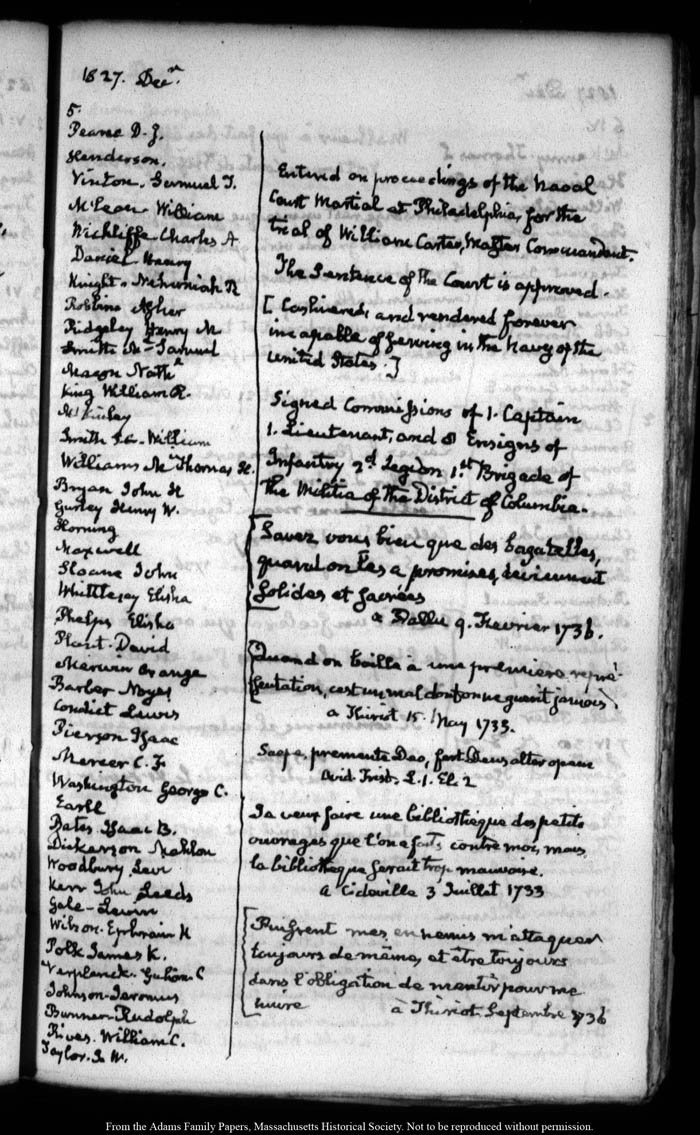 1827. Decr.
5.
Pearce D. J.
Henderson.
Vinton. Samuel F.
McLean William
Wickliffe Charles A
Daniel Henry
Knight. Nehemiah R
Robbins Asher
Ridgeley Henry M
Smith Md. Samuel
Macon Nathl
King William R.
McKinley
Smith S.C. William
Williams Mi. Thomas H.
Bryan John H
Gurley Henry W.
Horning
Maxwell
Sloane John
Whittlesey Elisha
Phelps Elisha
Plant. David
Merwin Orange
Barber Noyes
Condict Lewis
Pierson Isaac
Mercer C. F.
Washington George C.
Earll
Bates. Isaac B.
Dickerson Mahlon
Woodbury Levi
Kerr John Leeds
Gale Levin
Wilson. Ephraim H
Polk James K.
Verplanck. Gulian. C
Johnson. Jeromus
Bunner. Rudolph
Rives. William C.
Taylor. J. W.
Entered on proceedings of the Naval
Court Martial at Philadelphia, for the
trial of William Carter, Master Commandant.
The Sentence of the Court is approved.
[Cashiered, and rendered forever
incapable of serving in the Navy of the
United States.]
Signed Commissions of 1. Captain
1. Lieutenant, and 8 Ensigns of
Infantry 2d. Legion 1.st Brigade of
the Militia of the District of Columbia.
Savez vous bien que des bagatelles,
quand on les a promises, deviennent
solides et sacrées
a Dallu 9. Fevrier 1736.
Quand on baille a une premiere repré-
sentation, c'est un mal dont on ne guerit jamais
a Thiriot 15. May 1733.
Saepe, premente Deo, fert Deus alter opem
Ovid. Trist. L. 1. El. 2
Je veux faire une bibliotheque des petits
ouvrages que l'on a faits contre moi, mais
la bibliotheque serait trop mauvaise.
a Cideville 3 Juillet 1733
Puissent mes ennemis m'attaquer
toujours de même, et être toujours
dans l'obligation de mentir pour me
nuire
à Thiriot. Septembre 1736
From the Adams Family Papers, Massachusetts Historical Society. Not to be reproduced without permission.